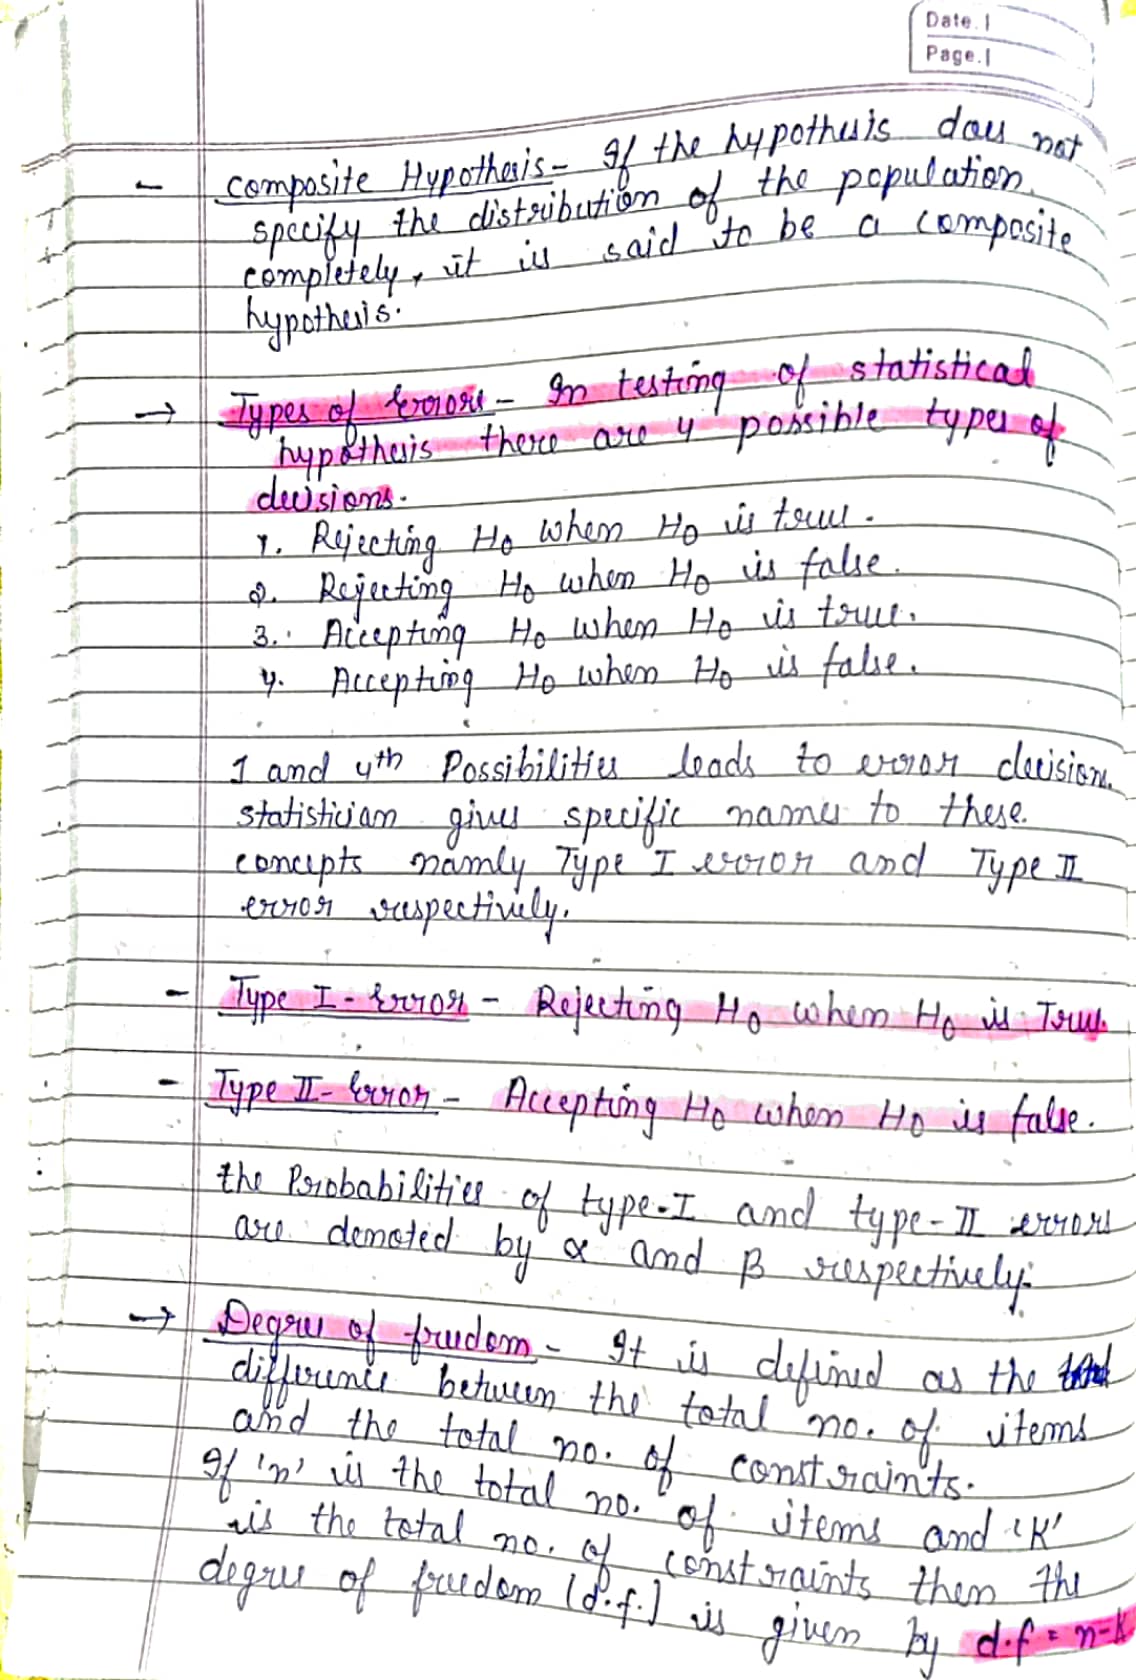 Date.
Page.
- Composite Hypothesis - If the hypothesis does not
specify the distribution of the population
completely, it is said to be a composite
hypothesis.
→ Types of Errors - In testing of statistical
hypothesis there are 4 possible types of
decisions.
1. Rejecting H0 when H0 is true.
2. Rejecting H0 when H0 is false.
3. Accepting H0 when H0 is true.
4. Accepting H0 when H0 is false.
1 and 4th Possibilities leads to error decision.
statistician gives specific names to these.
concepts namly Type I error and Type II
error respectively.
- Type I - Error - Rejecting H0 when H0 is True.
- Type II - Error - Accepting H0 when H0 is false.
the Probabilities of type-I and type-II errors
are denoted by α and β respectively.
→ Degree of freedom - It is defined as the
difference between the total no. of items
and the total no. of constraints.
If 'n' is the total no. of items and 'K'
is the total no. of constraints then the
degree of freedom (d.f.) is given by d.f = n-K